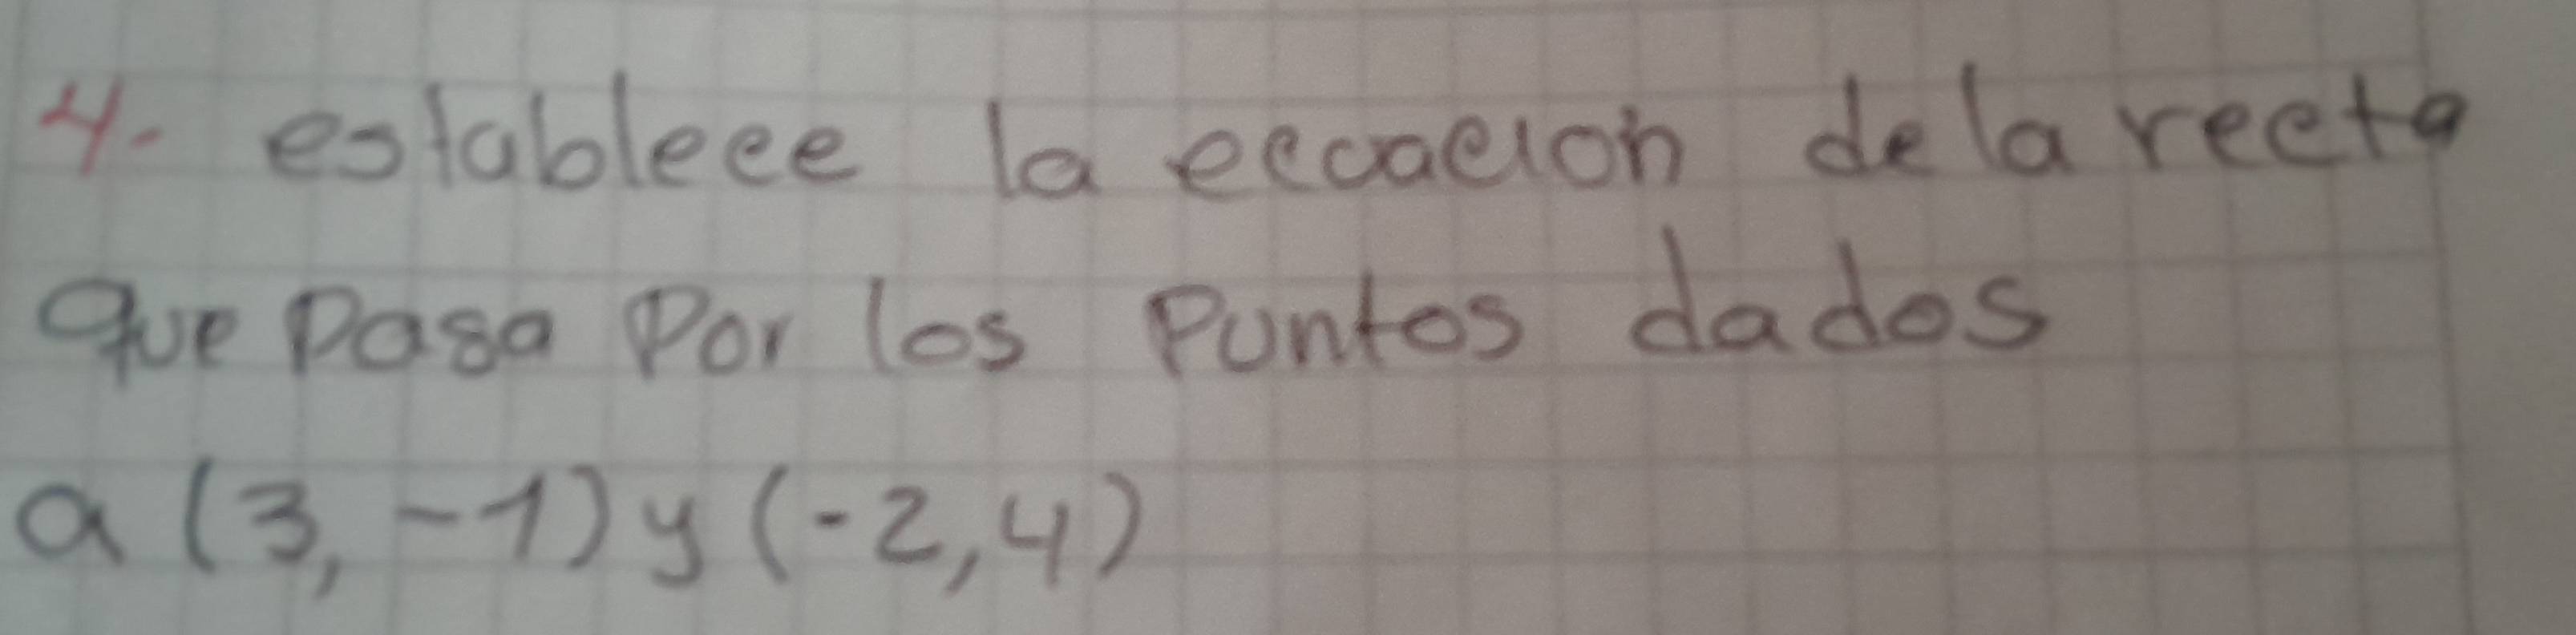 4. establece la ecuacion de la recta
que pasa por los puntos dados
a (3, -1) y (-2, 4)